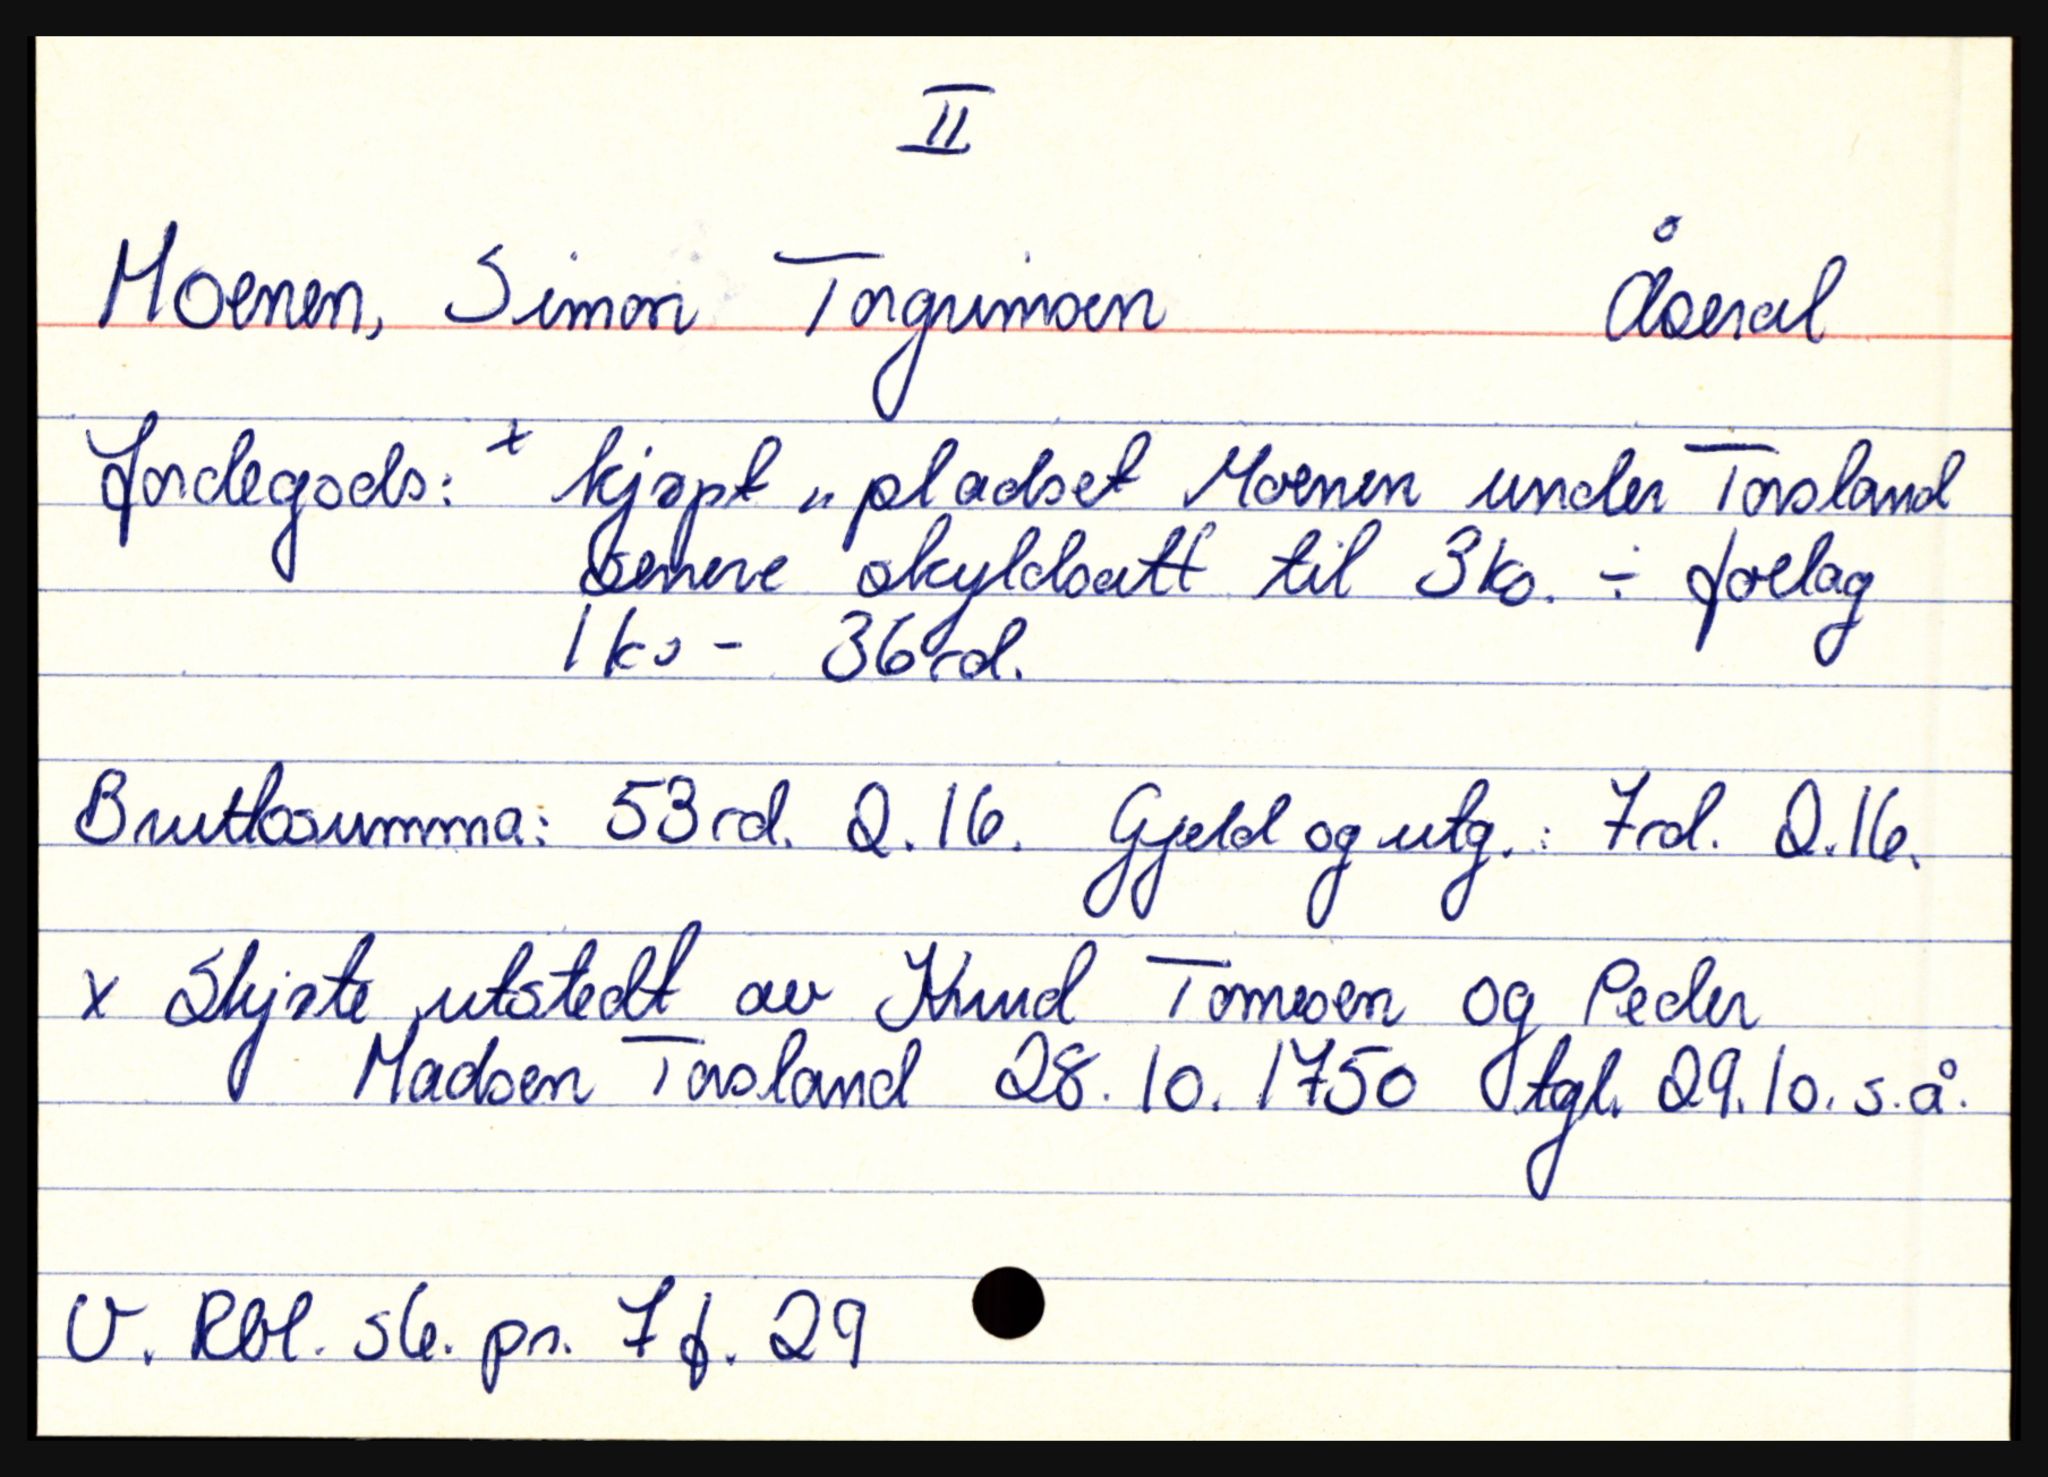 II
Moenen, Simon Torgrimsen Åseral
Jordegods: x kjøpt „ pladset Moenen under Torsland
senere skyldsatt til 3 ks. ÷ forlag
1 ks - 36 rd.
Bruttosumma: 53 rd. 2.16. Gjeld og utg.: 7 rd. 2.16.
x Skjøte utstedt av Knud Tomesen og Peder
Madsen Torsland 28.10.1750 tgl. 29.10. s.å.
V. Rbl. s6. pr. 7 f. 29